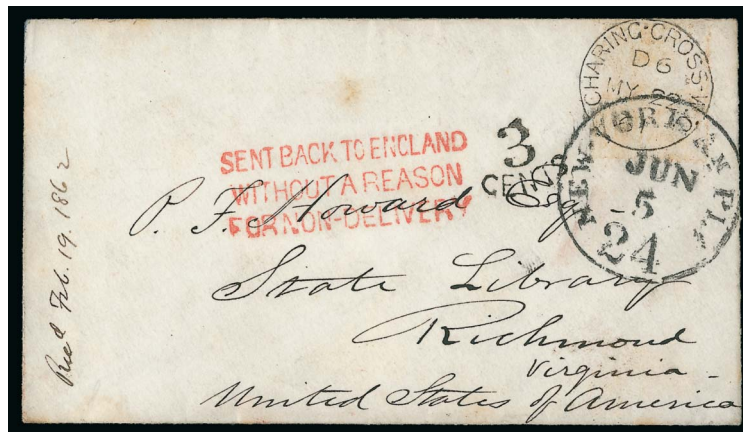 CHARING-CROSS-W
D 6
MY 22
61
NEW-YORK AM PKT
JUN
5
24
3
CENTS
SENT BACK TO ENGLAND
WITHOUT A REASON
FOR NON-DELIVERY
P. F. Howard Esq
State Library
Richmond
Virginia -
United States of America
Recd Feb. 19. 1862